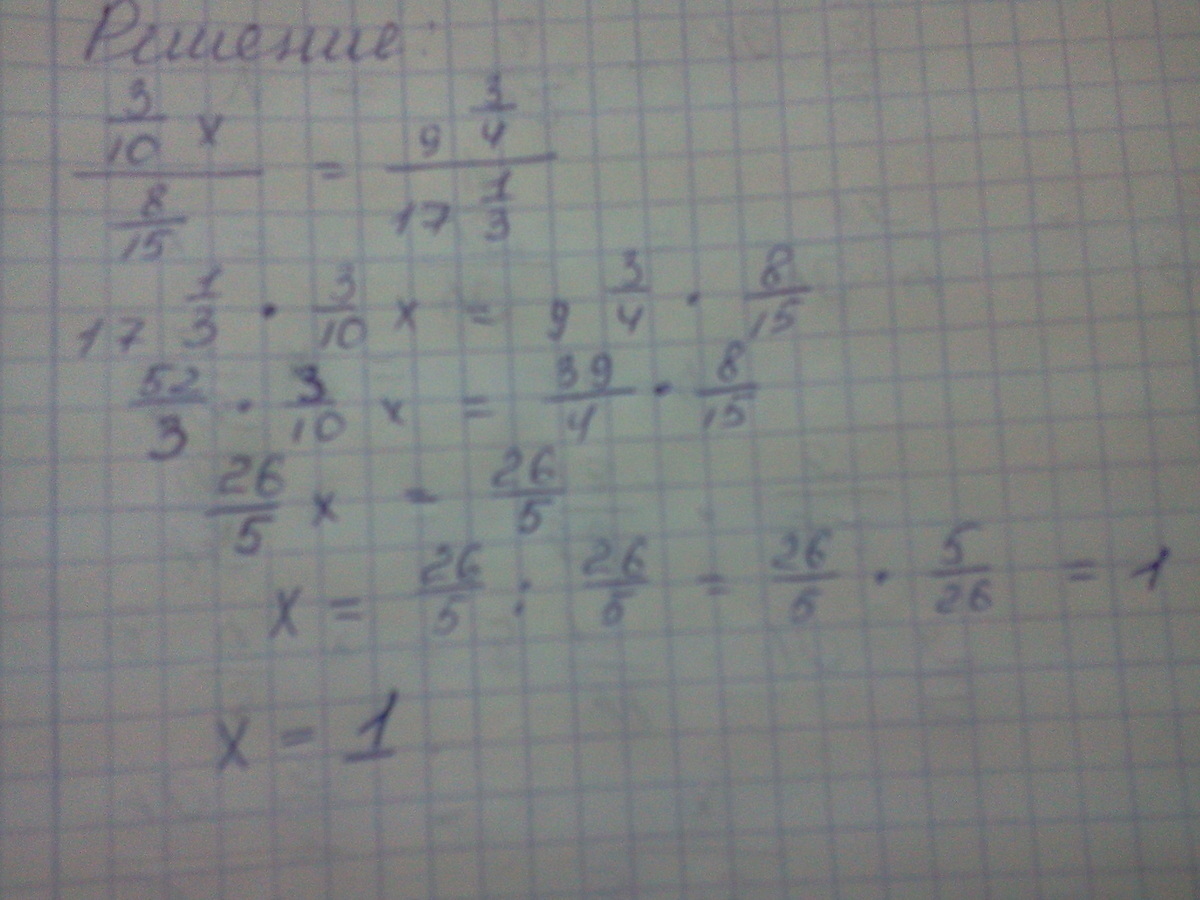 Решение:
3/10 x / 8/15 = 9 3/4 / 17 1/3
17 1/3 · 3/10 x = 9 3/4 · 8/15
52/3 · 3/10 x = 39/4 · 8/15
26/5 x = 26/5
x = 26/5 : 26/5 = 26/5 · 5/26 = 1
x = 1